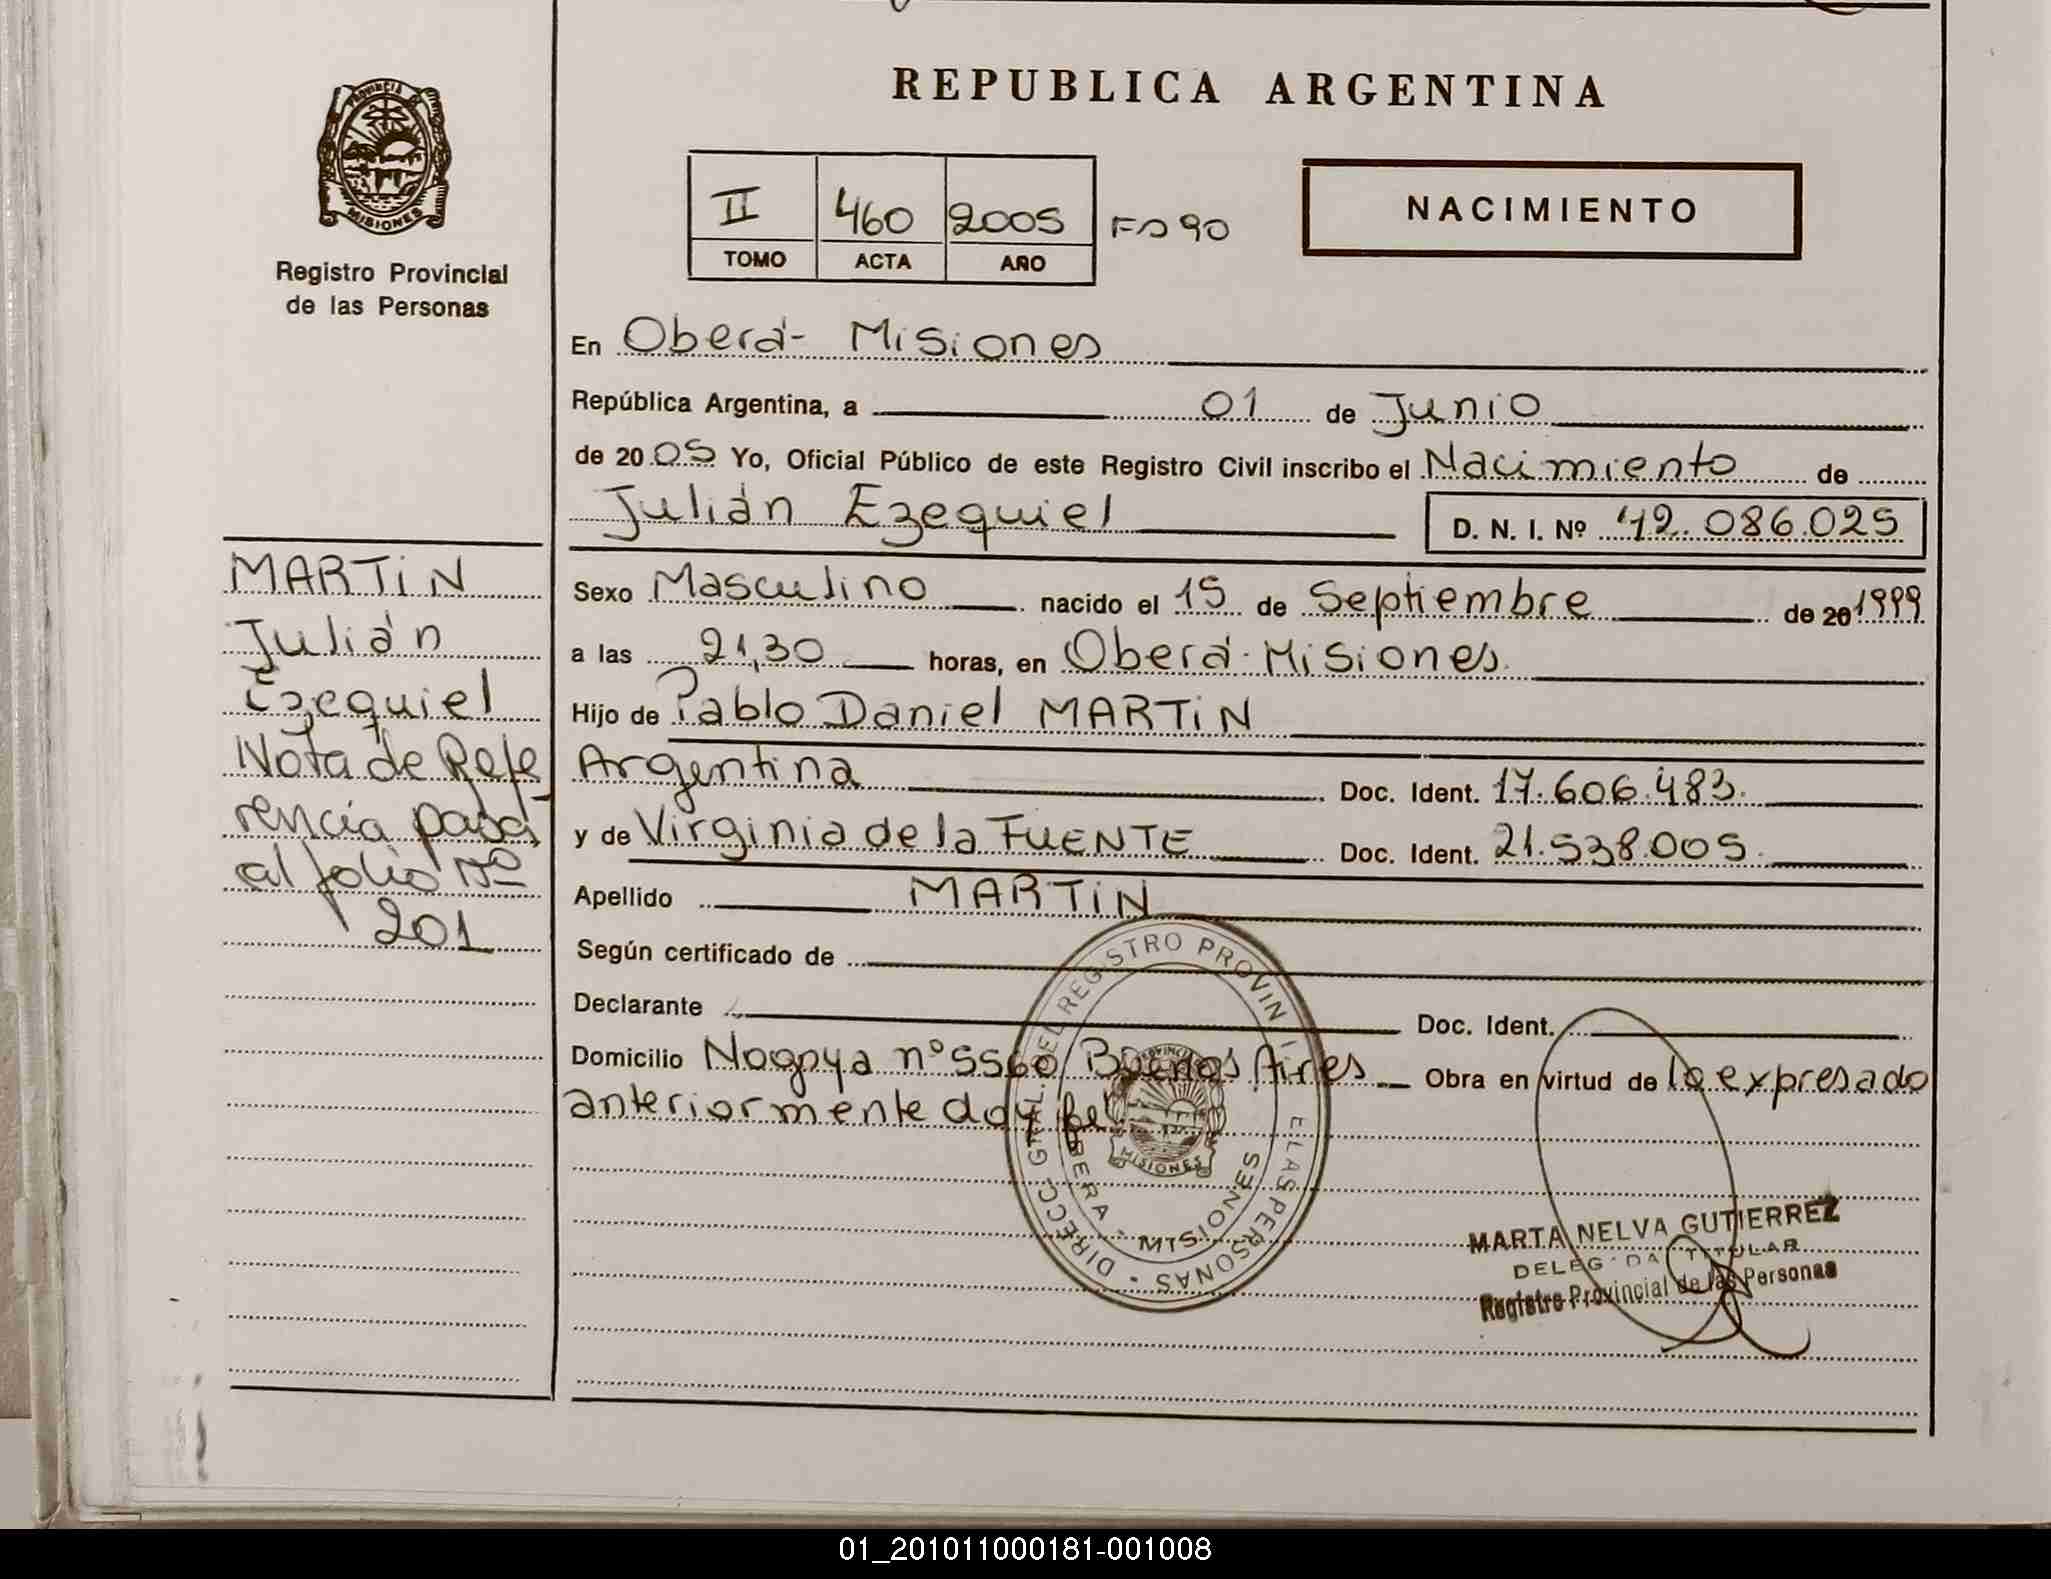 REPUBLICA ARGENTINA
PROVINCIA
MISIONES
Registro Provincial
de las Personas
II 460 2005 Fo 90
TOMO ACTA AÑO
NACIMIENTO
En Oberá - Misiones
República Argentina, a 01 de Junio
de 2005 Yo, Oficial Público de este Registro Civil inscribo el Nacimiento de
Julián Ezequiel D. N. I. Nº 42.086.025
MARTiN
Julián
Ezequiel
Nota de Refe
rencia pasa
al folio Nº
201
Sexo Masculino nacido el 15 de Septiembre de 20 1999
a las 21,30 horas, en Oberá - Misiones
Hijo de Pablo Daniel MARTiN
Argentina Doc. Ident. 17.606.483.
y de Virginia de la FUENTE Doc. Ident. 21.538.005
Apellido MARTiN
Según certificado de
Declarante Doc. Ident.
Domicilio Nogoya nº 5560 Buenos Aires Obra en virtud de lo expresado
anteriormente doy fe
DIRECC. GRAL. DEL REGISTRO PROVIN ELAS PERSONAS
BERA - MISIONES
PROVINCIA
MISIONES
MARTA NELVA GUTIERREZ
DELEGADA TITULAR
Registro Provincial de las Personas
01_201011000181-001008